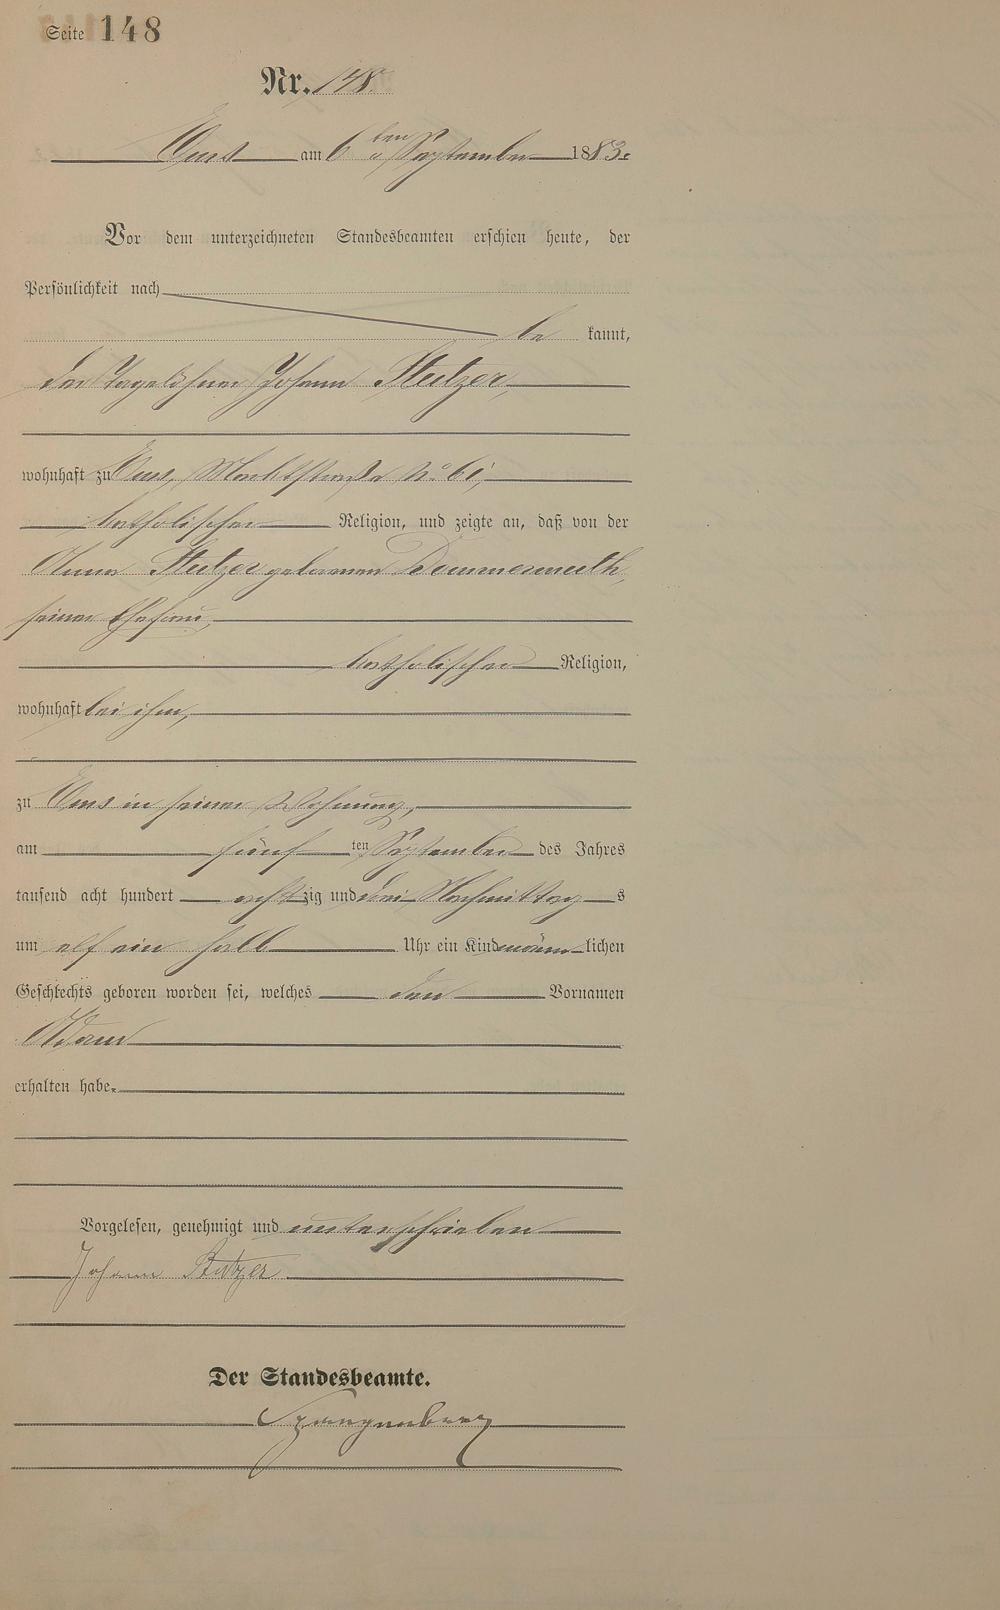 Seite 148
Nr. 148.
Ems am 6ten September 1883.
Vor dem unterzeichneten Standesbeamten erschien heute, der
Persönlichkeit nach
be kannt,
der Tagelöhner Johann Stutzer,
wohnhaft zu Ems, Marktstraße No 61,
katholischer Religion, und zeigte an, daß von der
Anna Stutzer geborenen Dommermuth,
seiner Ehefrau,
katholischer Religion,
wohnhaft bei ihm,
zu Ems in seiner Wohnung,
am fünf ten September des Jahres
tausend acht hundert acht zig und drei Nachmittag s
um elf ein halb Uhr ein Kind männ lichen
Geschlechts geboren worden sei, welches den Vornamen
Adam
erhalten habe.
Vorgelesen, genehmigt und unterschrieben
Johann Stutzer
Der Standesbeamte.
Spangenberg